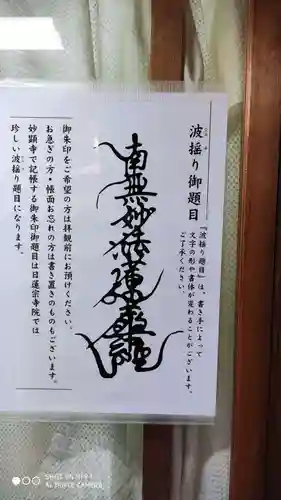 波揺り御題目
『波揺り題目』は、書き手によって
文字の形や書体が変わることがございます。
ご了承ください。
南無妙法蓮華経
御朱印をご希望の方は拝観前にお預けください。
お急ぎの方・帳面お忘れの方は書き置きのものもございます。
妙顕寺で記帳する御朱印御題目は日蓮宗寺院では
珍しい波揺り題目になります。
SHOT ON MI 9T
AI TRIPLE CAMERA